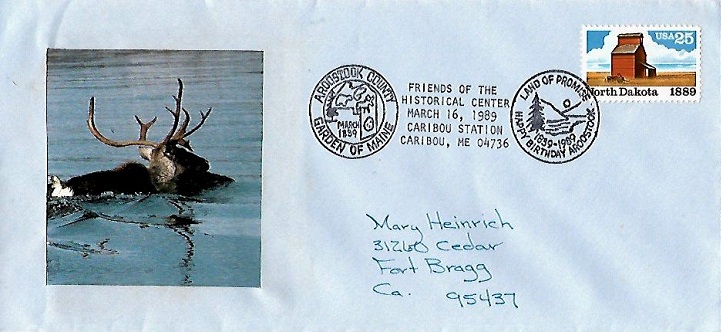 AROOSTOOK COUNTY
MARCH
1889
GARDEN OF MAINE
FRIENDS OF THE
HISTORICAL CENTER
MARCH 16, 1989
CARIBOU STATION
CARIBOU, ME 04736
LAND OF PROMISE
1839-1989
HAPPY BIRTHDAY AROOSTOOK
USA 25
North Dakota 1889
Mary Heinrich
31260 Cedar
Fort Bragg
Ca. 95437